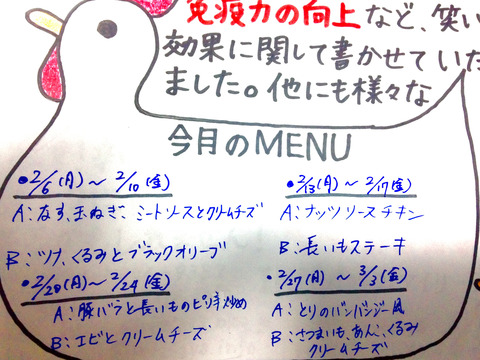 免疫力の向上など、笑い
効果に関して書かせていた
ました。他にも様々な
今月のMENU
•2/6(月)～2/10(金)
A:なす、玉ねぎ、ミートソースとクリームチーズ
B:ツナ、くるみとブラックオリーブ
•2/13(月)～2/17(金)
A:ナッツソースチキン
B:長いもステーキ
•2/20(月)～2/24(金)
A:豚バラと長いものピリ辛炒め
B:エビとクリームチーズ
•2/27(月)～3/3(金)
A:とりのバンバンジー風
B:さつまいも、あんこ、くるみ
クリームチーズ